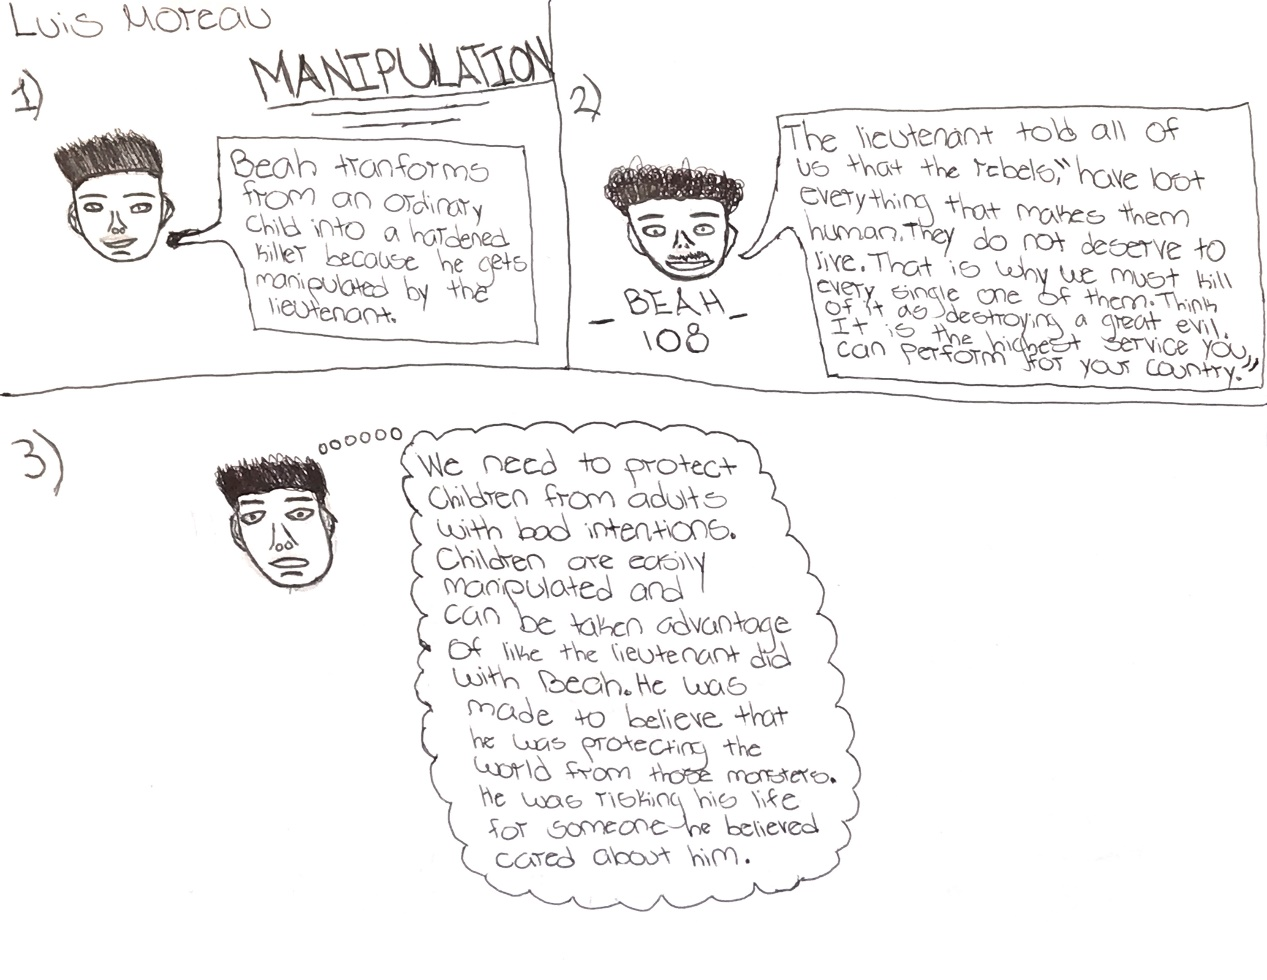 Luis Moreau
MANIPULATION
1)
Beah tranforms
from an ordinary
child into a hardened
killer because he gets
manipulated by the
lieutenant.
2)
BEAH
108
The lieutenant told all of
us that the rebels, "have lost
everything that makes them
human. They do not deserve to
live. That is why we must kill
every single one of them. Think
of it as destroying a great evil.
It is the highest service you
can perform for your country."
3)
We need to protect
Children from adults
with bad intentions.
Children are easily
manipulated and
can be taken advantage
of like the lieutenant did
with Beah. He was
made to believe that
he was protecting the
world from those monsters.
He was risking his life
for someone he believed
cared about him.